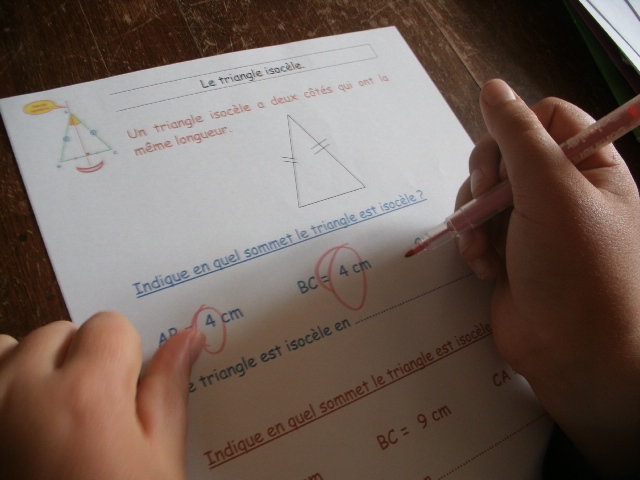 Le triangle isocèle.
Un triangle isocèle a deux côtés qui ont la
même longueur.
Indique en quel sommet le triangle est isocèle ?
AB = 4 cm BC = 4 cm
e triangle est isocèle en ....................
Indique en quel sommet le triangle est isocèle
BC = 9 cm CA
cm